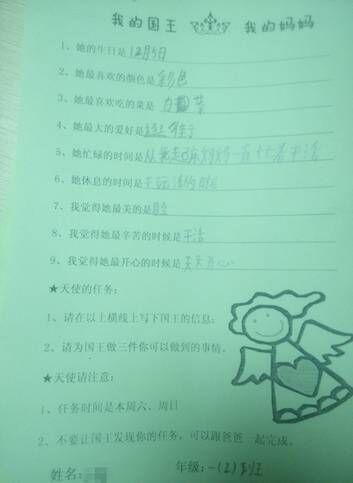 我的国王 我的妈妈
1、她的生日是12月5日
2、她最喜欢的颜色是彩色
3、她最喜欢吃的菜是 菜
4、她最大的爱好是
5、她忙碌的时间是从
6、她休息的时间是
7、我觉得她最美的是
8、我觉得她最辛苦的时候是干活
9、我觉得她最开心的时候是天天开心
★天使的任务:
1、请在以上横线上写下国王的信息;
2、请为国王做三件你可以做到的事情。
★天使请注意:
1、任务时间是本周六、周日
2、不要让国王发现你的任务,可以跟爸爸一起完成。
姓名: 年级:一(2)班